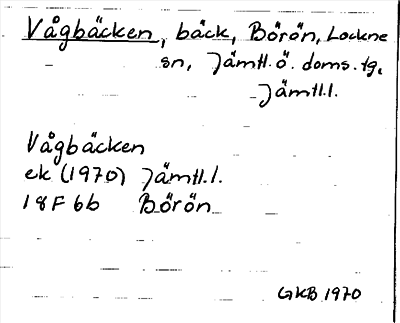 Vågbäcken, bäck, Börön, Lockne
sn, Jämtl. ö. doms. tg,
Jämtl.l.
Vågbäcken
ek (1970) Jämtl.l.
18F 6b Börön
GKB 1970